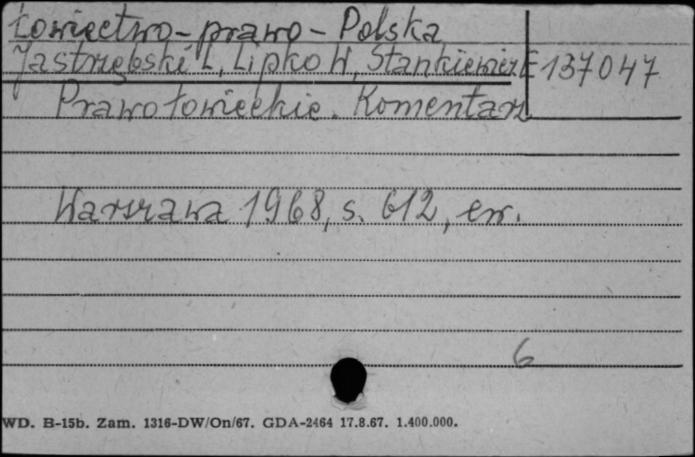 Łowiectwo - prawo - Polska
Jastrzębski L, Lipko W, Stankiewicz E 137047
Prawo łowieckie. Komentarz
Warszawa 1968, s. 612, err.
6
WD. B-15b. Zam. 1316-DW/On/67. GDA-2464 17.8.67. 1.400.000.